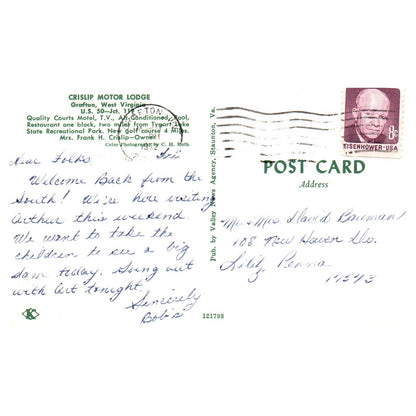 CRISLIP MOTOR LODGE
Grafton, West Virginia
U.S. 50—Jct. 119
Quality Courts Motel, T.V., Air-Conditioned, Pool,
Restaurant one block, two miles from Tygart Lake
State Recreational Park. New golf course 4 Miles.
Mrs. Frank H. Crislip—Owner
Color Photography by C. H. Ruth
Dear Folks
Welcome Back from the
South! We're here visiting
Arthur this weekend.
We want to take the
children to see a big
dam today. Going out
with Art tonight.
Sincerely
Bob's
K
Pub. by Valley News Agency, Staunton, Va.
1972
8c
EISENHOWER·USA
POST CARD
Address
Mr & Mrs David Bauman
108 New Haven Dr.
Lititz, Penna
17543
121793